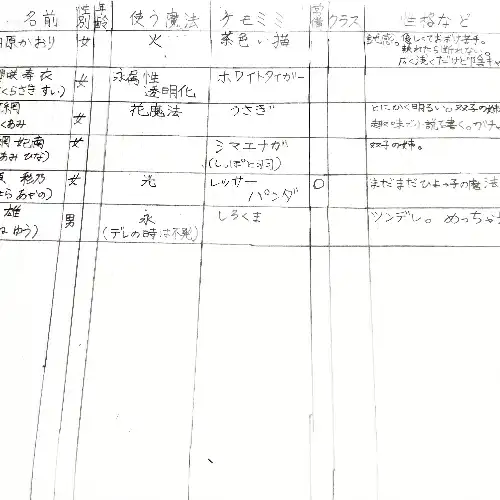 名前 性別 年齢 使う魔法 ケモミミ クラス 性格など
原かおり 女 火 茶色い猫 優しくておだけ苦手。
頼れたら断れない。
広く浅くだけど
咲 寿衣 女 氷属性 ホワイトタイガー
くらさき すい) 透明化
女 花魔法 うさぎ とにかく明るい 双子の妹
くあみ 趣味で小説を書く。ガチ
妃南 女 シマエナガ 双子の姉。
あみ ひな) (しっぽとか可)
彩乃 女 光 レッサー ○ まだまだひよっ子の魔法
パンダ
雄 男 氷 しろくま ツンデレ。めっちゃ
ゆう) (デレの時は不発)